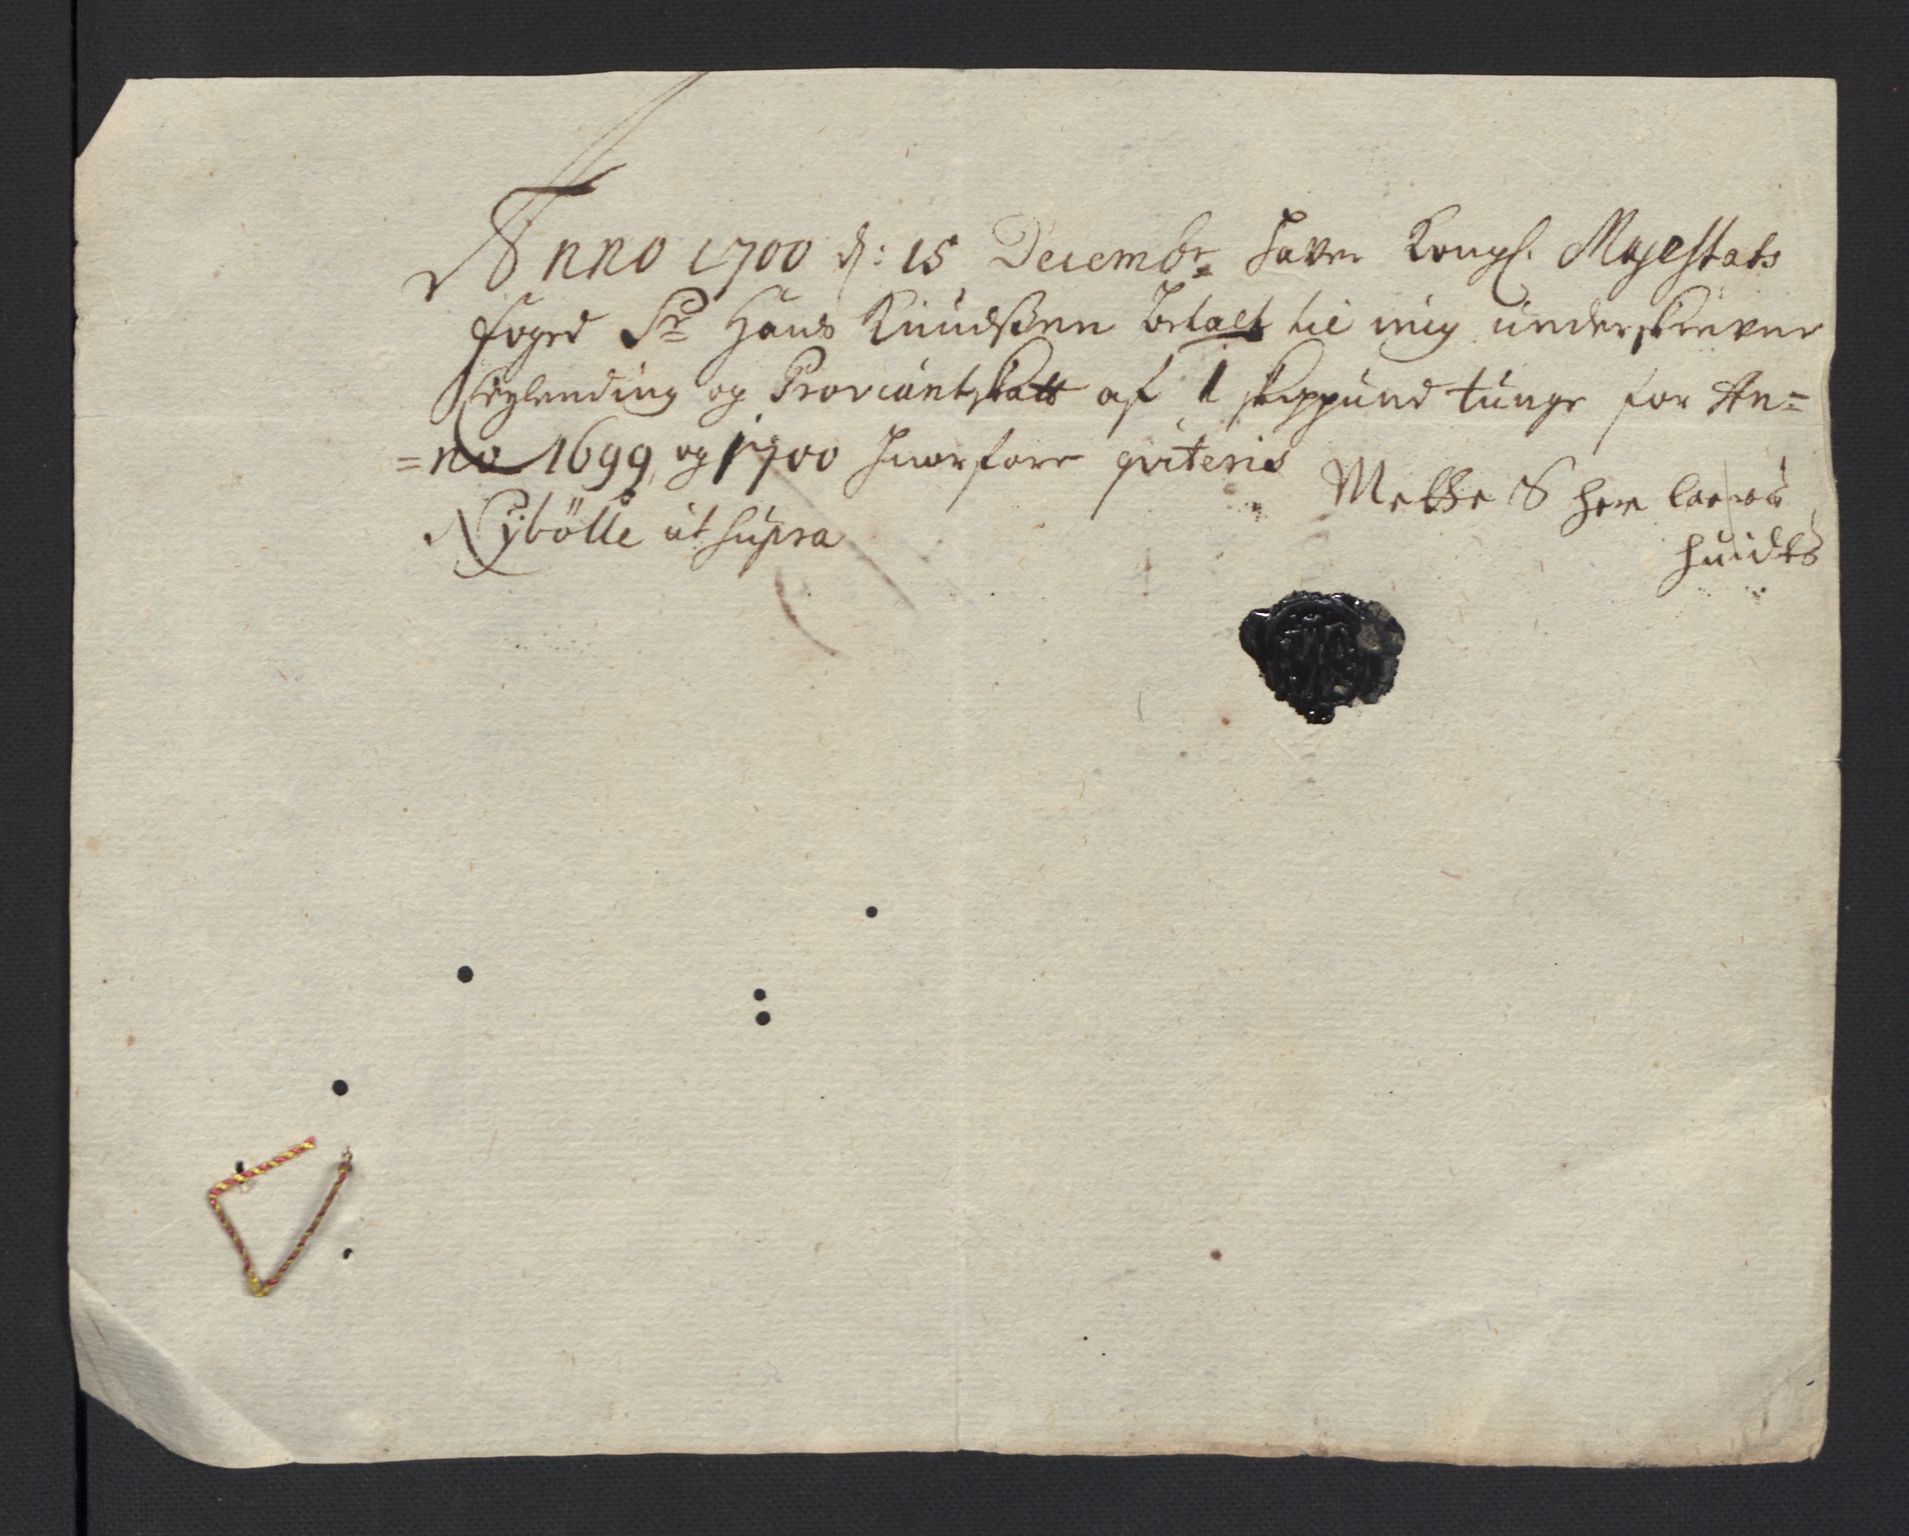 Anno 1700 d: 15 Decembr haver Kongl. Majestats
foged Sr Hans Knudsßen betalt til mig underskrevne
og Proviantskatt af 1 skippund tunge for An=
=no 1699 og 1700 hvorfore qviteris
Nybölle ut supra
Methe S her
huidts